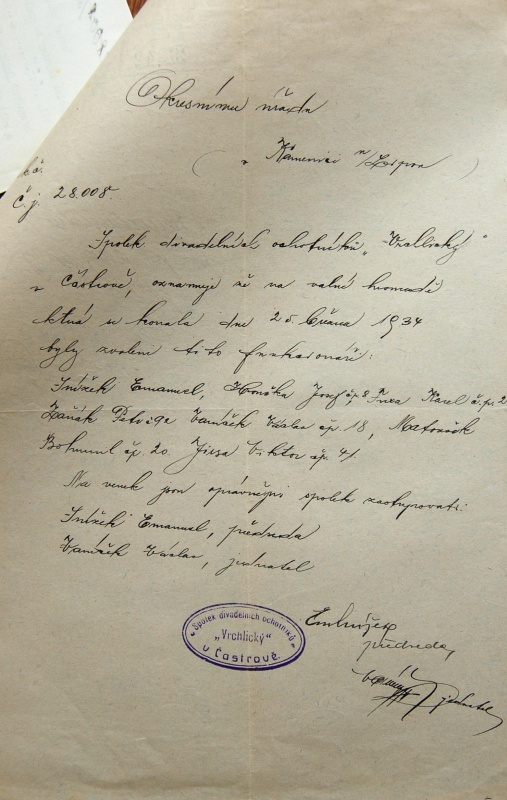 Okresnímu úřadu
v Kamenici n/Lipou
č.j. 28.008.
Spolek divadelních ochotníků „Vrchlický“
v Častrově, oznamuje že na valné hromadě
která se konala dne 25. března 1934
byly zvoleni tito funkcionáři:
Emanuel, Josef čp. 8 Karel č.p. 2
Vaněček Václav čp. 18, Matoušek
Bohumil čp. 20 Jirsa Viktor čp. 41.
Na venek jsou oprávněni spolek zastupovati:
Emanuel, předseda
Vaněček Václav, jednatel
Spolek divadelních ochotníků
„Vrchlický“
v Častrově.
předseda,
jednatel